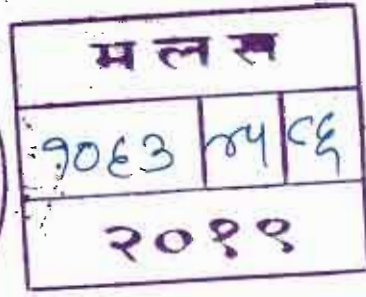 म ल स
१०६३ ४५ ८६
२०१९